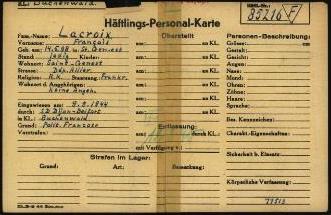 KL. Buchenwald.
Häftl.-Nr.
35216 F
Häftlings-Personal-Karte
Fam.-Name: Lacroix
Vorname: François
Geb. am: 14.5.98 in St. Genest
Stand: ledig Kinder:
Wohnort: Saint-Genest
Strasse: Dép. Allier
Religion: R.K. Staatsang. Frankr.
Wohnort d. Angehörigen:
Keine Angeh.
Eingewiesen am: 9.9.1944
durch: Dijon-Belfort
in KL.: Buchenwald
Grund: Polit. Franzose
Vorstrafen:
Überstellt
am: an KL.
am: an KL.
am: an KL.
am: an KL.
am: an KL.
am: an KL.
Entlassung:
am: durch KL.:
mit Verfügung v.:
Personen-Beschreibung:
Grösse:
Gestalt:
Gesicht:
Augen:
Nase:
Mund:
Ohren:
Zähne:
Haare:
Sprache:
Bes. Kennzeichen:
Charakt.-Eigenschaften:
Sicherheit b. Einsatz:
Körperliche Verfassung:
Strafen im Lager:
Grund: Art: Bemerkung: